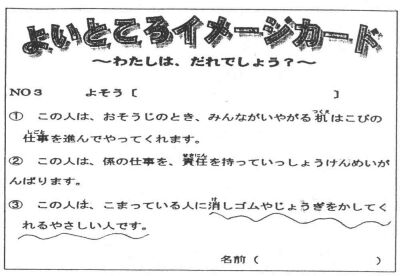 よいところイメージカード
～わたしは、だれでしょう？～
NO3　　よそう［　　　　　　　　　　　　］
①　この人は、おそうじのとき、みんながいやがる机はこびの
仕事を進んでやってくれます。
②　この人は、係の仕事を、責任を持っていっしょうけんめいが
んばります。
③　この人は、こまっている人に消しゴムやじょうぎをかしてく
れるやさしい人です。
名前（　　　　　　　　　）